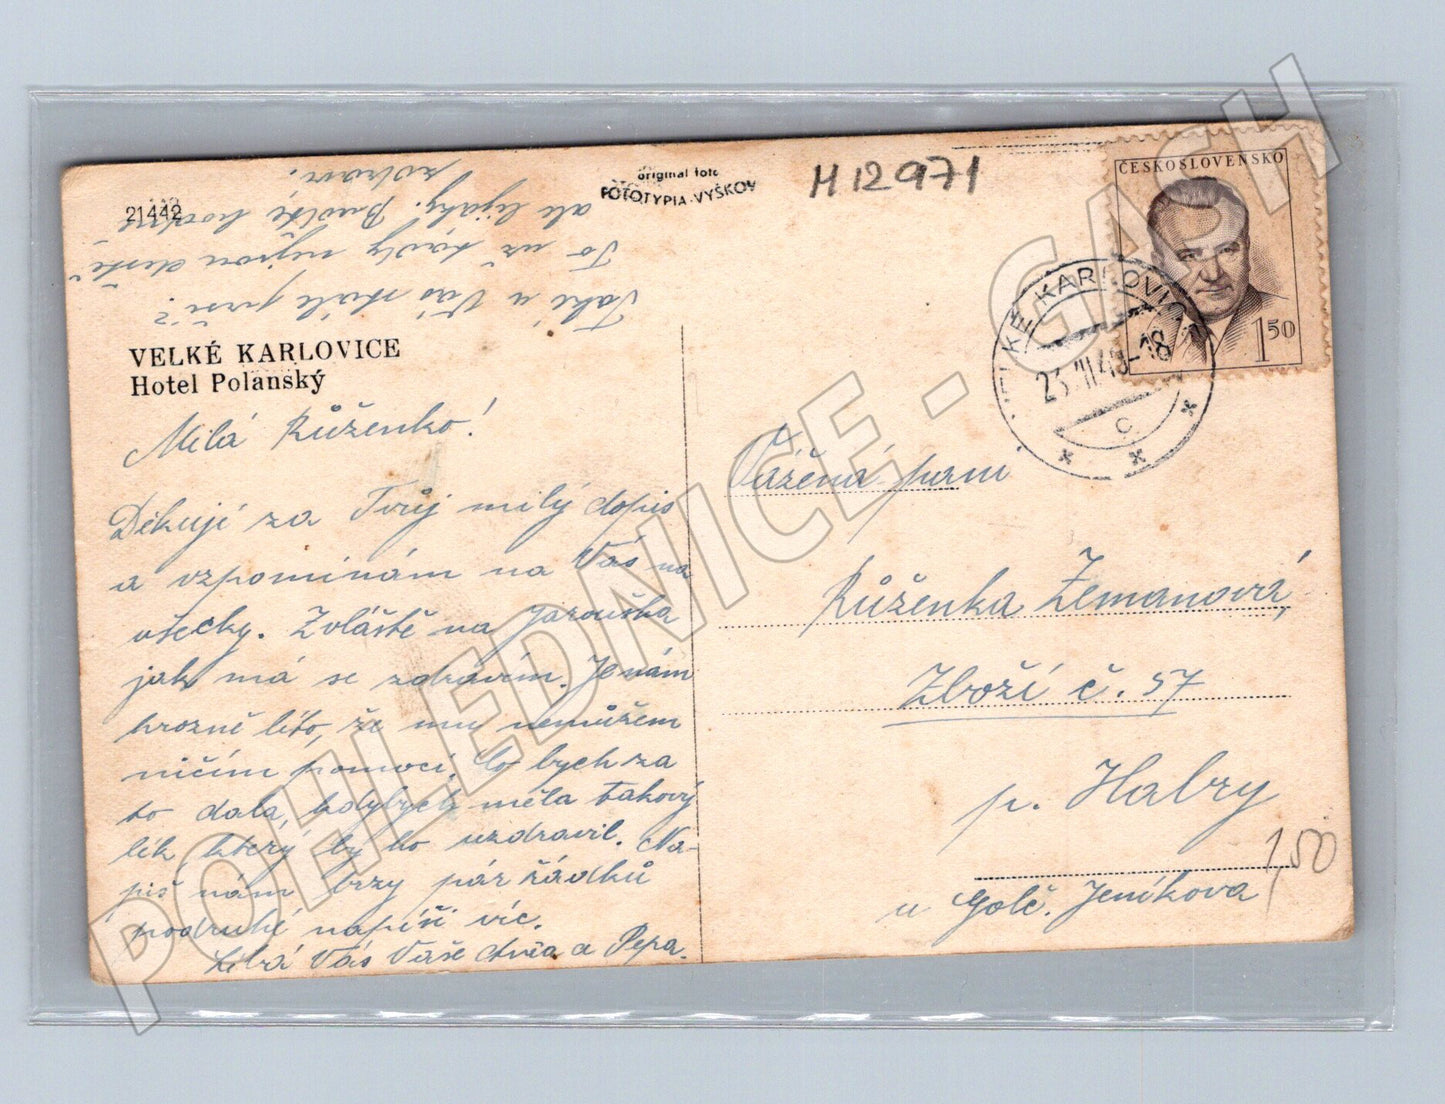 21442
original foto
FOTOTYPIA-VYŠKOV
H12971
ČESKOSLOVENSKO
1 50
VELKÉ KARLOVICE
23. VII 48-18
C
VELKÉ KARLOVICE
Hotel Polanský
Milá Růženko!
Děkuji za Tvůj milý dopis
a vzpomínám na Vás na
všecky. Zvláště na Jarouška
jak má se zdravím. Je nám
hrozně líto, že mu nemůžem
ničím pomoci. Co bych za
to dala, kdybych měla takový
lék který by ho uzdravil. Na-
piš nám brzy pár řádků
podruhé napíši víc.
Líbá Vás Vaše a Pepa.
Také u Vás stále prší?
To už tady nejsou deště
ale lijáky. Buďte hodně
zdraví.
Vážená paní
Růženka Zemanová,
Zboží č. 57
p. Habry
u Golč. Jeníkova
1,50
POHLEDNICE - GASH